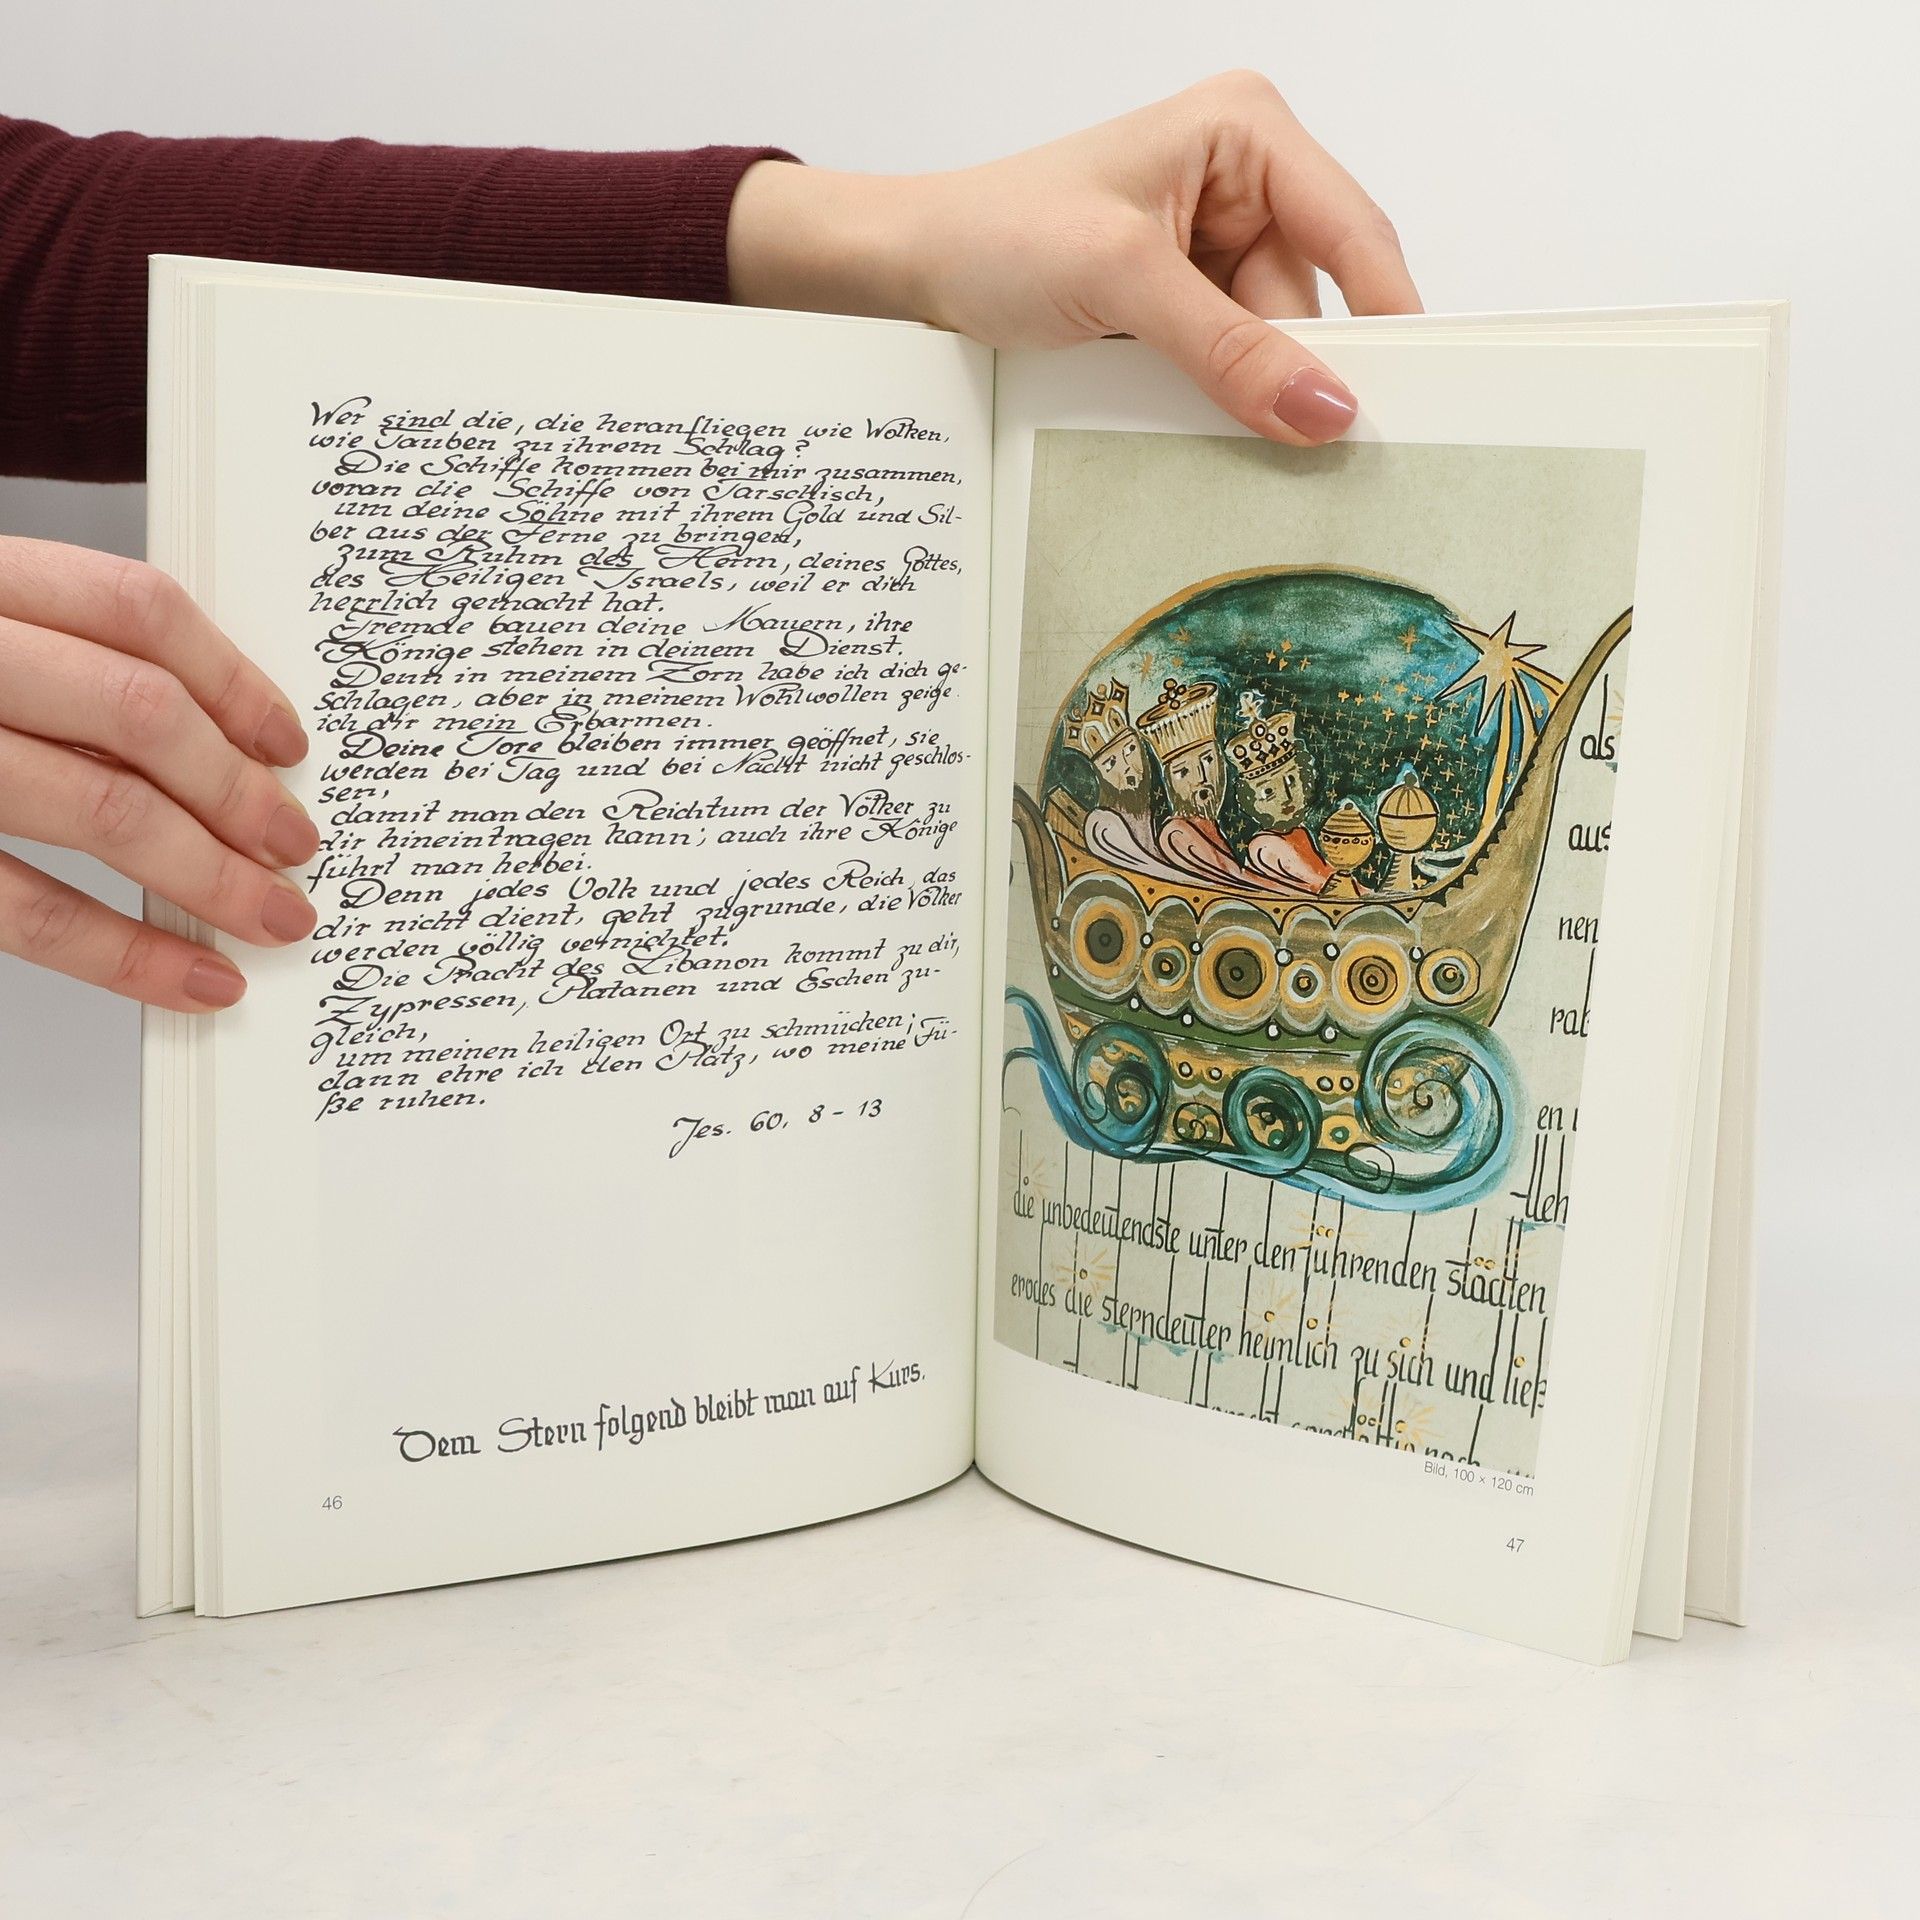 Wer sind die, die heranfliegen wie Wolken,
wie Tauben zu ihrem Schlag?
Die Schiffe kommen bei mir zusammen,
voran die Schiffe von Tarschisch,
um deine Söhne mit ihrem Gold und Sil-
ber aus der Ferne zu bringen,
zum Ruhm des Herrn, deines Gottes,
des Heiligen Israels, weil er dich
herrlich gemacht hat.
Fremde bauen deine Mauern, ihre
Könige stehen in deinem Dienst.
Denn in meinem Zorn habe ich dich ge-
schlagen, aber in meinem Wohlwollen zeige
ich dir mein Erbarmen.
Deine Tore bleiben immer geöffnet, sie
werden bei Tag und bei Nacht nicht geschlos-
sen,
damit man den Reichtum der Völker zu
dir hineintragen kann; auch ihre Könige
führt man herbei.
Denn jedes Volk und jedes Reich, das
dir nicht dient, geht zugrunde, die Völker
werden völlig vernichtet.
Die Pracht des Libanon kommt zu dir,
Zypressen, Platanen und Eschen zu-
gleich,
um meinen heiligen Ort zu schmücken;
dann ehre ich den Platz, wo meine Fü-
ße ruhen.
Jes. 60, 8 - 13
Dem Stern folgend bleibt man auf Kurs.
46
als
aus
nen
rab
en
die unbedeutendste unter den führenden städten
erodes die sterndeuter heimlich zu sich und ließ
Bild, 100 × 120 cm
47